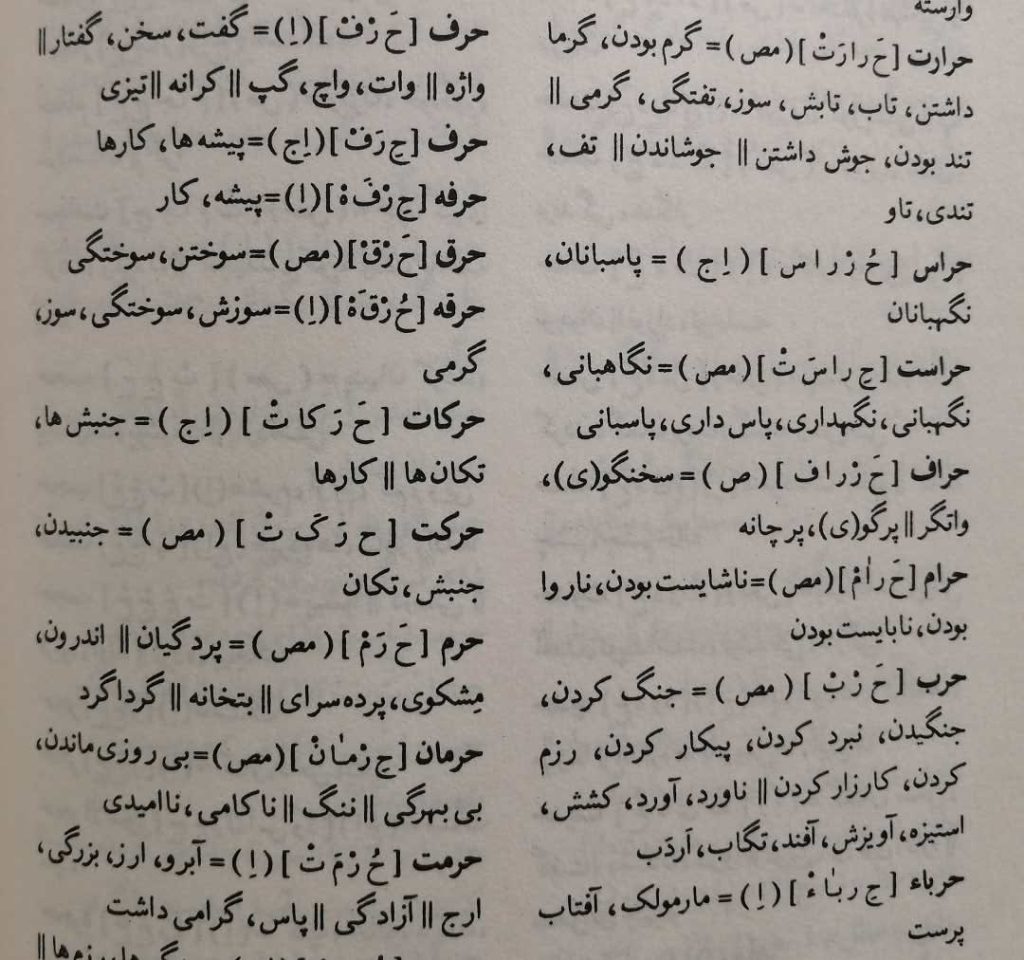 وارسته
حرارت [حَ رارَتْ] (مص) = گرم بودن، گرما
داشتن، تاب، تابش، سوز، تفتگی، گرمی ||
تند بودن، جوش داشتن || جوشاندن || تف،
تندی، تاو
حراس [حُ رْ را س] (اِ ج) = پاسبانان،
نگهبانان
حراست [حِ راسَ تْ] (مص) = نگاهبانی،
نگهبانی، نگهداری، پاس داری، پاسبانی
حراف [حَ رْ را ف] (ص) = سخنگو(ی)،
واتگر || پرگو(ی)، پرچانه
حرام [حَ راٰمْ] (مص) = ناشایست بودن، ناروا
بودن، نابایست بودن
حرب [حَ رْ بْ] (مص) = جنگ کردن،
جنگیدن، نبرد کردن، پیکار کردن، رزم
کردن، کارزار کردن || ناورد، آورد، کشش،
استیزه، آویزش، آفند، تگاب، اَردَب
حرباء [حِ ر بٰا ءْ] (اِ) = مارمولک، آفتاب
پرست
حرف [حَ رْ فْ] (اِ) = گفت، سخن، گفتار ||
واژه || وات، واچ، گپ || کرانه || تیزی
حرف [حِ رَ فْ] (اِج) = پیشه ها، کارها
حرفه [حِ رْ فَ هْ] (اِ) = پیشه، کار
حرق [حَ رْ قْ] (مص) = سوختن، سوختگی
حرقه [حُ رْ قَ هْ] (اِ) = سوزش، سوختگی، سوز،
گرمی
حرکات [حَ رَ کا تْ] (اِ ج) = جنبش ها،
تکان ها || کارها
حرکت [ح رَ کَ تْ] (مص) = جنبیدن،
جنبش، تکان
حرم [حَ رَ مْ] (مص) = پردگیان || اندرون،
مِشکوی، پرده سرای || بتخانه || گرداگرد
حرمان [حِ رْ مٰا نْ] (مص) = بی روزی ماندن،
بی بهرگی || ننگ || ناکامی، ناامیدی
حرمت [حُ رْ مَ تْ] (اِ) = آبرو، ارز، بزرگی،
ارج || آزادگی || پاس، گرامی داشت
رزم ها ||